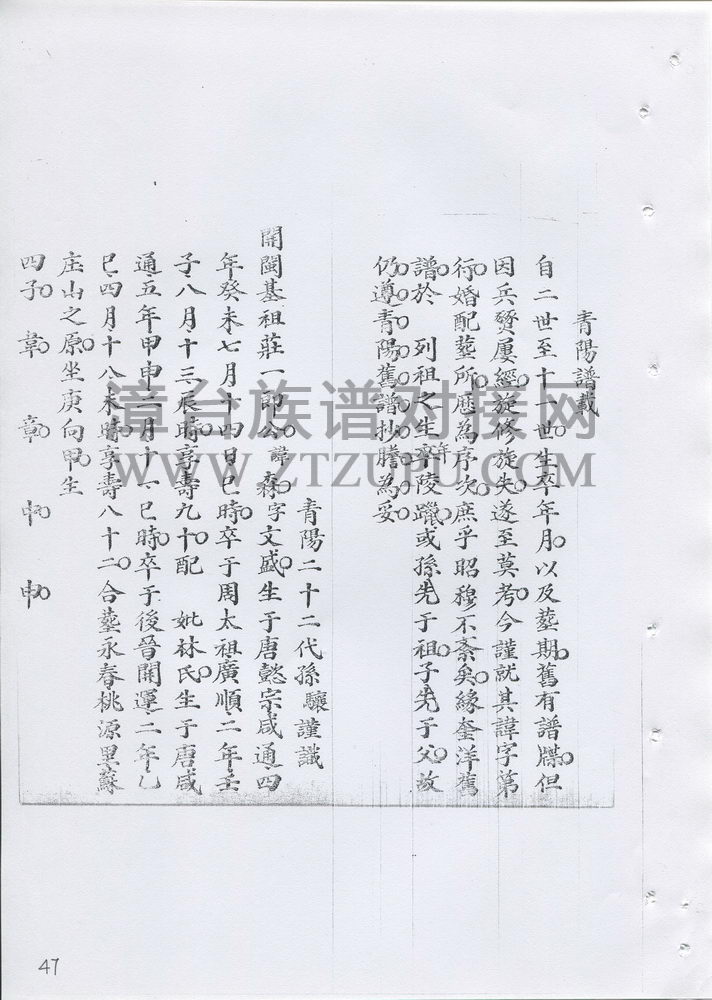 青陽譜載
自二世至十一世生卒年月以及葬期舊有譜牒但
因兵燹屢經旋修旋失遂至莫考今謹就其諱字第
行婚配葬所歷為序次庶乎昭穆不紊矣緣奎洋舊
譜於 列祖之生卒年陵躐或孫先于祖子先于父故
仍遵青陽舊譜抄謄為妥
青陽二十二代孫驤謹識
開閩基祖莊一郎公諱森字文盛生于唐懿宗咸通四
年癸未七月十四日巳時卒于周太祖廣順二年壬
子八月十三辰時享壽九十配 妣林氏生于唐咸
通五年甲申二月十一巳時卒于後晉開運二年乙
巳四月十八未時享壽八十二合塟永春桃源里蘇
庄山之原坐庚向甲生
四子 韋 章 申 申
漳台族谱对接网
WWW.ZTZUPU.COM
47